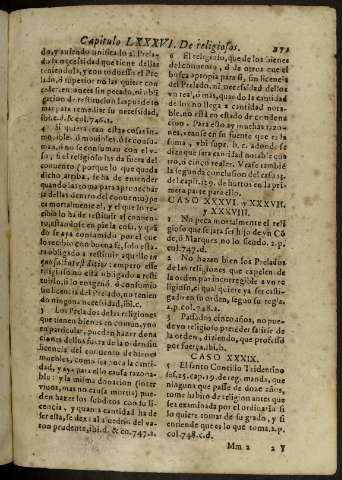 Capitulo LXXXVI. De religiosos. 272
do, y auiendo auisado al Prela-
do la necessidad que tiene dellas
teniendola, y con todo esso el Pre
lado, ò superior no las quiere con
ceder, entonces sin pecado, ni obli
gacion de restitucion las puede to
mar para remediar su necessidad,
ibi. c. d. & col. 746. 1.
4 Si quiera sean estas cosas in-
mobiles, ò mobiles, ò se consu-
man, ò no se consuman con el v-
so, si el religioso las da fuera del
conuento (porque lo que queda
dicho arriba, se ha de entender
quando las toma para aprouechar
se dellas dentro del conuento) pe
ca mortalmente el, y el que lo re-
cibio ha de restituir al conuen-
to, estandose en pie la cosa, y quã
do se aya consumido, por el que
lo recibio con buena fe, solo esta-
ra obligado a restituir aquello in
quo factus est ditior: empero esse
religioso no està obligado a resti
tuirlo, si lo enagenò, ò consumio
sin licencia del Prelado, no tenien
do ninguna necessidad, ibi. c.
5 Los Prelados de las religiones
que tienen bienes en comun, y no
en particular, pueden hazer dona
ciones dellos fuera de la orden sin
licencia del conuento de bienes
muebles, como sea poca la canti-
dad, y aya para ello causa razona-
ble: y la misma donacion (inter
viuos, mas no causa mortis) pue-
den hazer los subditos con su li-
cencia, y quanta cantidad ha de
ser esta, se dexa al aluedrio del va-
ron prudente, ibi. d. & co. 747. 1.
6 El religioso, que de los bienes
del conuento, ò de otros que el
busca apropia para si, sin licencia
del Prelado, ni necessidad dellos
vn real, ò mas, quando la cantidad
de los no llega a cantidad nota-
ble, no està en estado de condena
cion. Para esto ay muchas razo-
nes, veanse en su fuente que es la
suma, vbi supr. b. c. adonde se
dize que sera cantidad notable qua
tro, ò cinco reales. Vease tambiẽ
la segunda conclusion del caso 15.
del capit. 170. de hurtos en la pri
mera parte para ello.
CASO XXXVI. y XXXVII.
y XXXVIII.
1 No peca mortalmente el reli
gioso que se jata ser hijo de vn Cõ
de, ò Marques no lo siendo. 2. p.
col. 747. d.
2 No hazen bien los Prelados
de las religiones que expelen de
la orden por incorregible a vn re
ligioso, el qual quiere ya ser casti-
gado en su orden, segun su regla.
2. p. col. 748. 2.
3 Passados cinco años, no pue-
de vn religioso pretender salirse de
la orden, diziendo, que professò
por fuerça, ibi. b.
CASO XXXIX.
5 El santo Concilio Tridentino
ses. 25. cap. 17. de reg. manda, que
ninguna que passe de doze años,
tome habito de religion antes que
sea examinada por el ordinario si
lo quiere tomar de su grado, y si
entiende que es lo que toma, 2. p.
col. 748. c. d.
Mm 2 2 Y